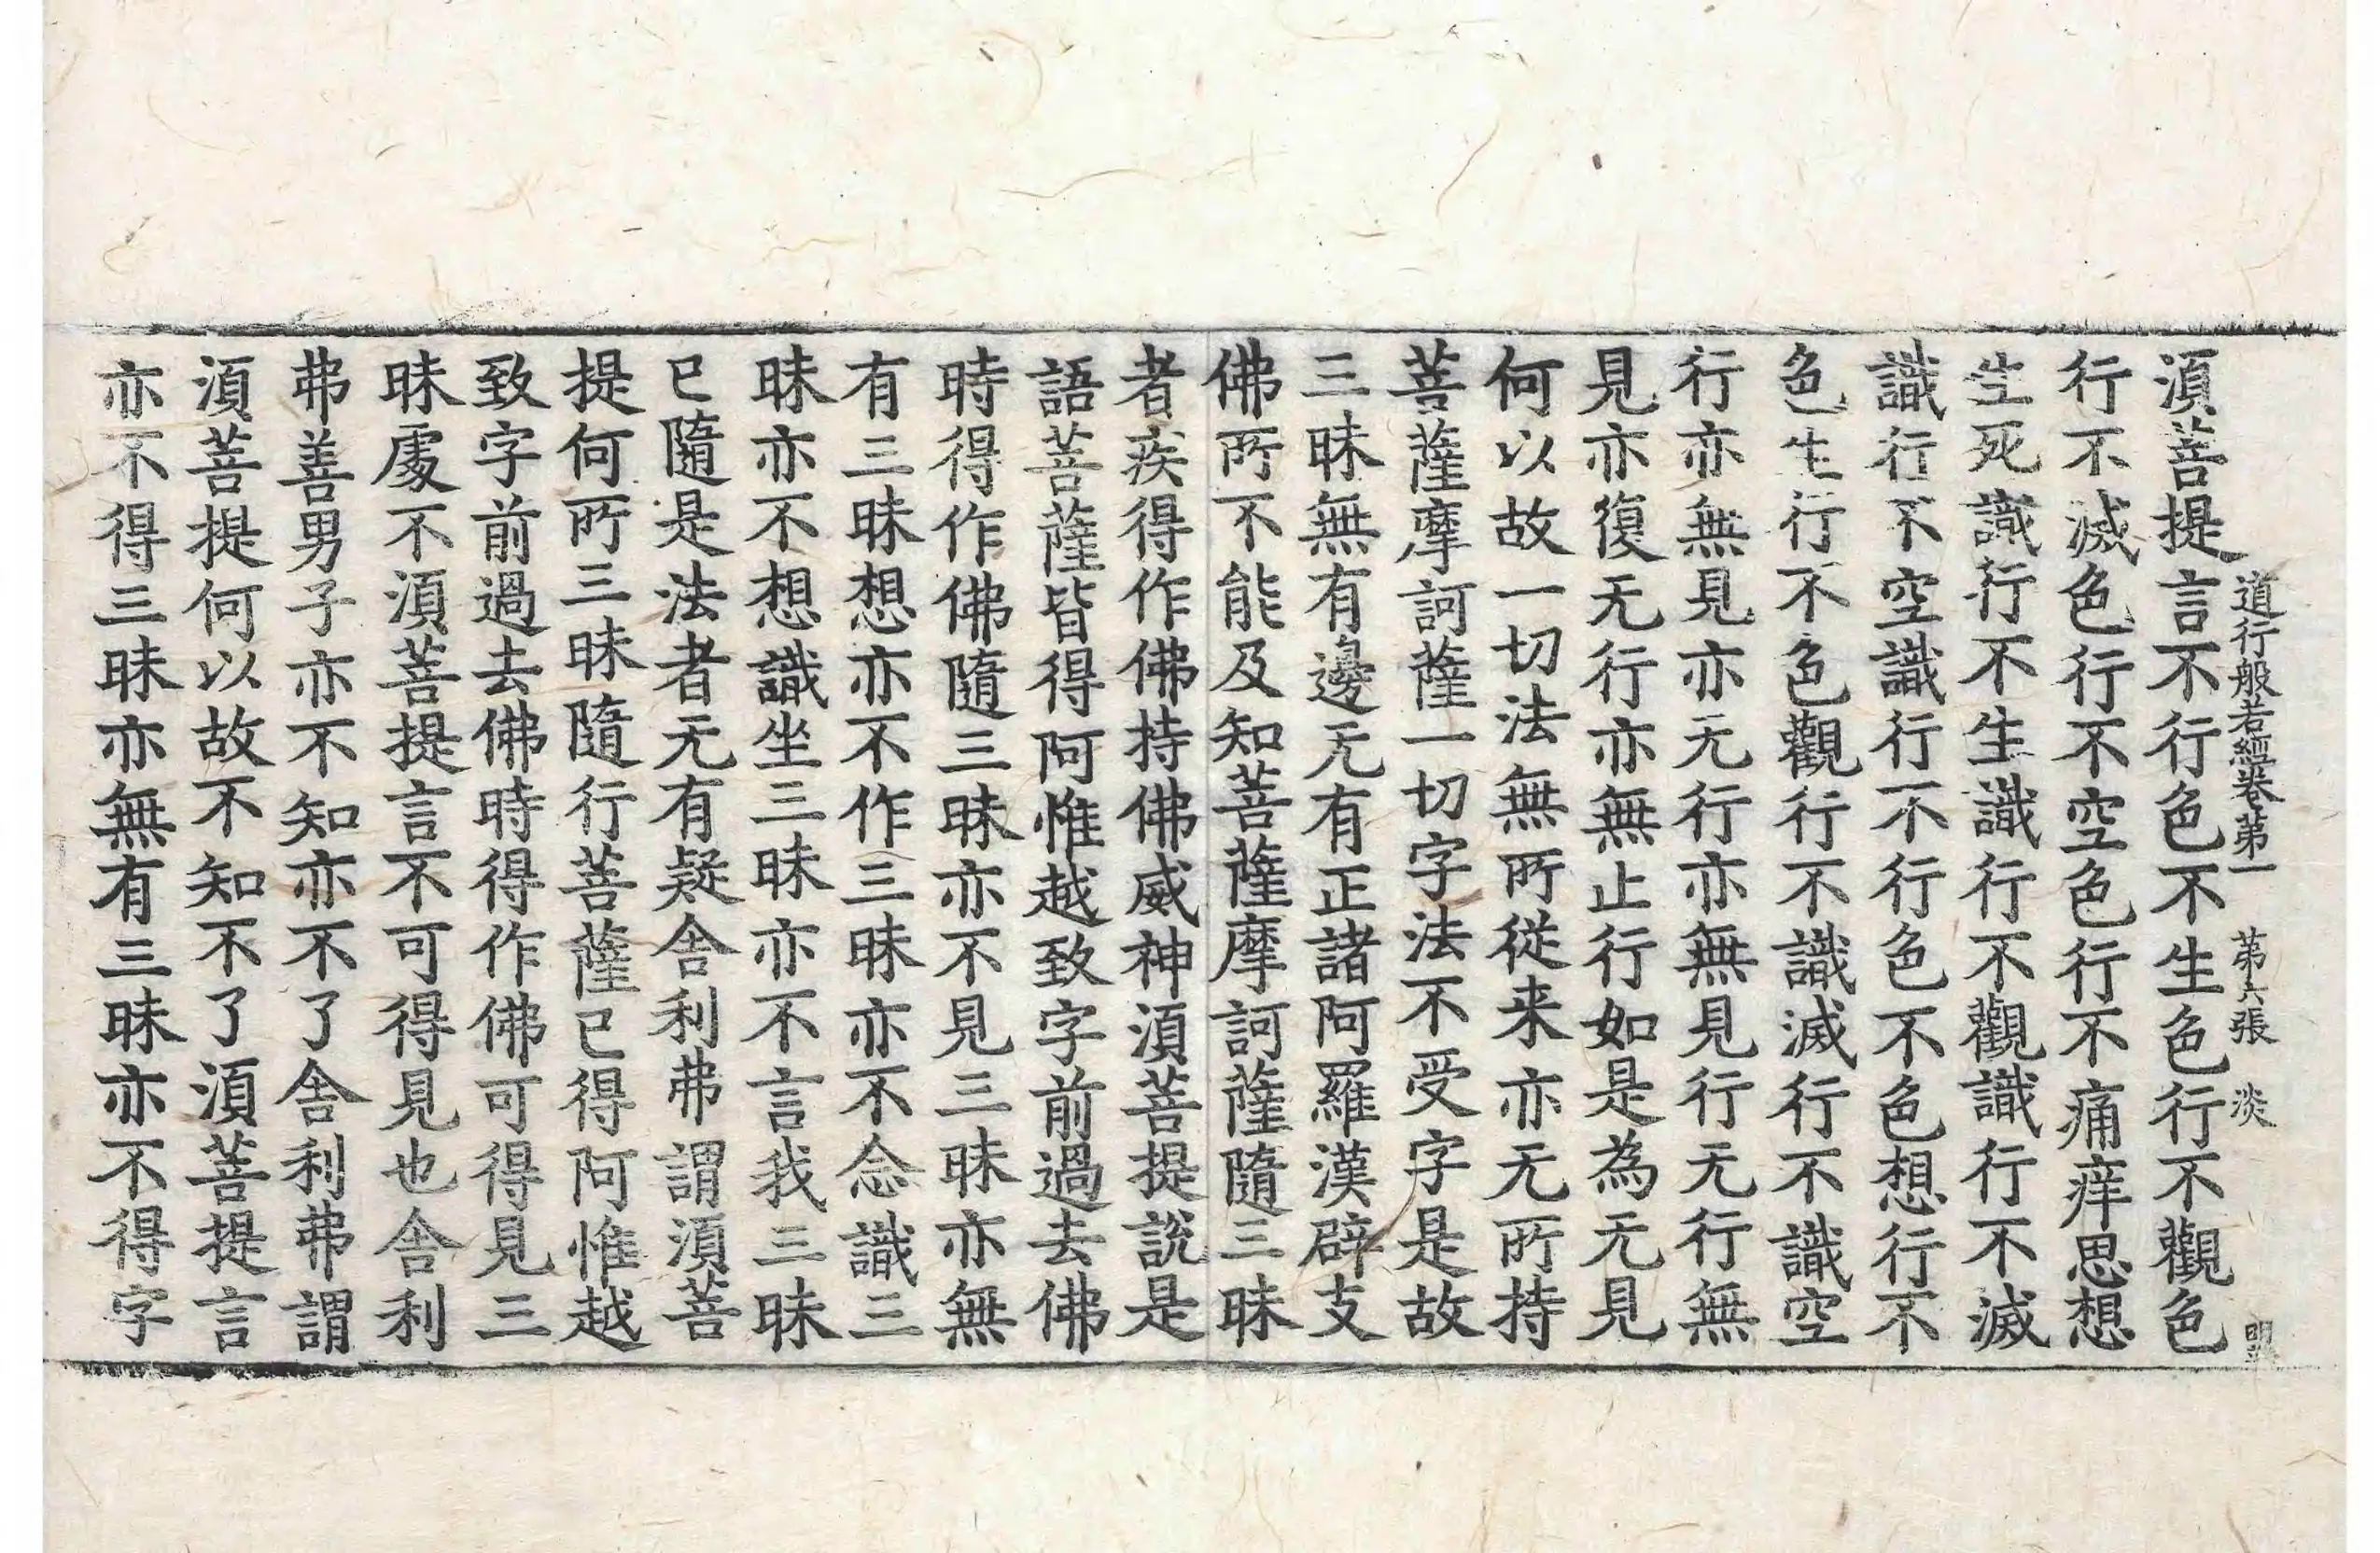 道行般若經卷第一　第六張　淡
須菩提言不行色不生色行不觀色
行不滅色行不空色行不痛痒思想
生死識行不生識行不觀識行不滅
識行不空識行不行色不色想行不
色生行不色觀行不識滅行不識空
行亦無見亦无行亦無見行无行無
見亦復无行亦無止行如是為无見
何以故一切法無所從来亦无所持
菩薩摩訶薩一切字法不受字是故
三昧無有邊无有正諸阿羅漢辟支
佛所不能及知菩薩摩訶薩隨三昧
者疾得作佛持佛威神須菩提說是
語菩薩皆得阿惟越致字前過去佛
時得作佛隨三昧亦不見三昧亦無
有三昧想亦不作三昧亦不念識三
昧亦不想識坐三昧亦不言我三昧
已隨是法者无有疑舍利弗謂須菩
提何所三昧隨行菩薩已得阿惟越
致字前過去佛時得作佛可得見三
昧處不須菩提言不可得見也舍利
弗善男子亦不知亦不了舍利弗謂
須菩提何以故不知不了須菩提言
亦不得三昧亦無有三昧亦不得字